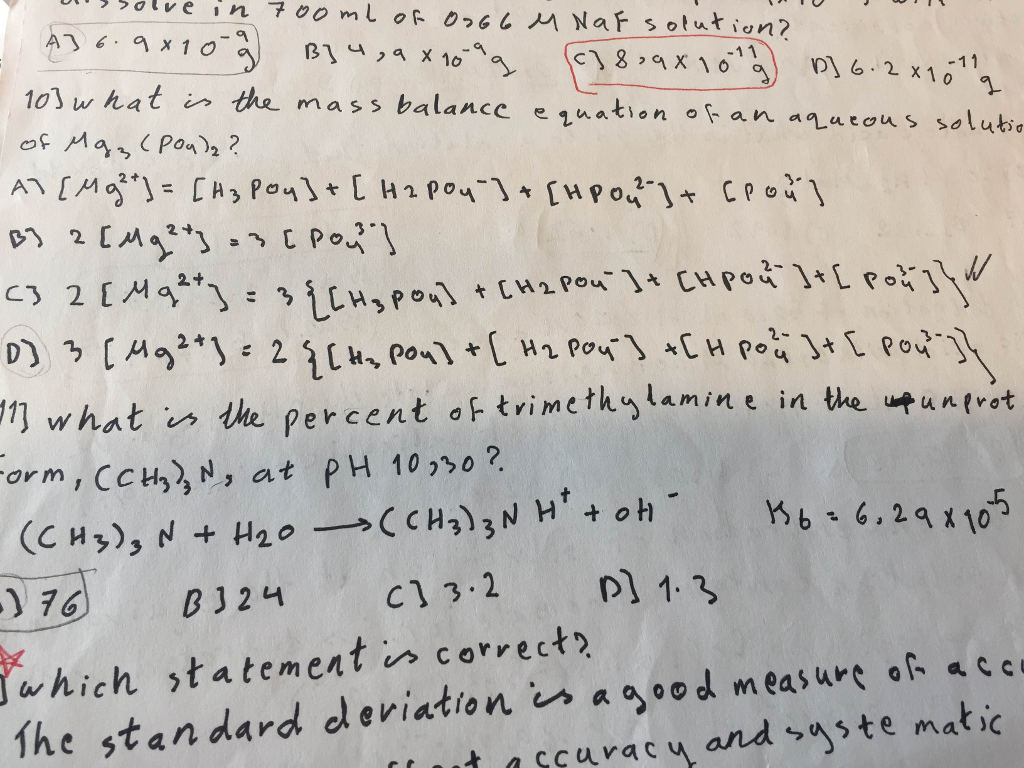 solve in 700 ml of 0,66 M NaF solution?
A] 6.9 x 10⁻⁹ g B] 4,9 x 10⁻⁹ g C] 8,9 x 10⁻¹¹ g D] 6.2 x 10⁻¹¹ g
10] what is the mass balance equation of an aqueous solutio
of Mg₃(PO₄)₂?
A] [Mg²⁺] = [H₃PO₄] + [H₂PO₄⁻] + [HPO₄²⁻] + [PO₄³⁻]
B] 2 [Mg²⁺] = 3 [PO₄³⁻]
C] 2 [Mg²⁺] = 3 {[H₃PO₄] + [H₂PO₄⁻] + [HPO₄²⁻] + [PO₄³⁻]}
D] 3 [Mg²⁺] = 2 {[H₃PO₄] + [H₂PO₄⁻] + [HPO₄²⁻] + [PO₄³⁻]}
11] what is the percent of trimethylamine in the unprot
form, (CCH₃)₃N, at pH 10,30?
(CH₃)₃N + H₂O → (CH₃)₃NH⁺ + OH⁻ Kb = 6.29 x 10⁻⁵
] 76 B] 24 C] 3.2 D] 1.3
] which statement is correct?
The standard deviation is a good measure of accu
accuracy and systematic